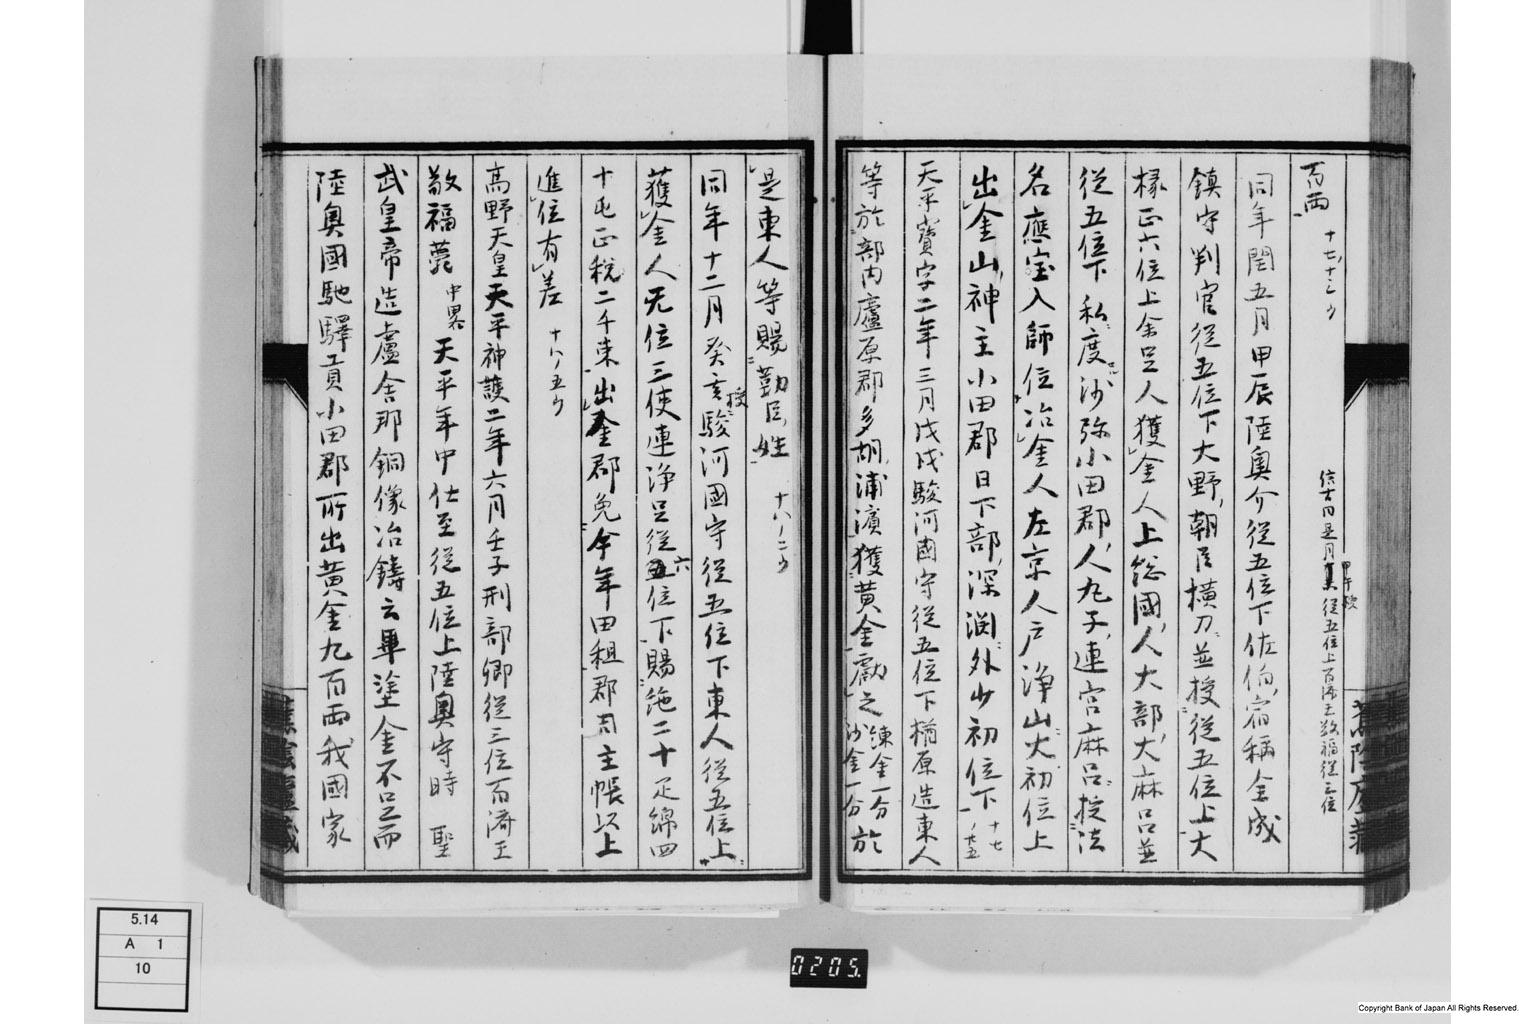 百両 十七ノ十三ウ
同年閏五月甲辰陸奧介從五位下佐伯宿祢全成
鎮守判官從五位下大野朝臣横刀並授從五位上大
掾正六位上余足人獲金人上総國人大部大麻呂並
從五位下私度沙弥小田郡人丸子連宮麻呂授法
名應宝入師位冶金人左京人戸淨山大初位上
出金山神主小田郡日下部深淵外少初位下 十七ノ七五
天平寳字二年三月戊戌駿河國守從五位下楢原造東人
等於部内廬原郡多胡浦濱獲黄金獻之 練金一分 沙金一分 於
是東人等賜勤臣姓 十八ノ二ウ
同年十二月癸亥授駿河國守從五位下東人從五位上
獲金人无位三使連淨足從六位下賜絁二十疋綿四
十屯正税二千束出金郡免今年田租郡司主帳以上
進位有差 十八ノ五ウ
高野天皇天平神護二年六月壬子刑部卿從三位百済王
敬福薨 中畧 天平年中仕至從五位上陸奧守時 聖
武皇帝造盧舎那銅像冶鑄云畢塗金不足而
陸奧國馳驛貢小田郡所出黄金九百両我國家
5.14
A 1
10
0205.
Copyright Bank of Japan All Rights Reserved.